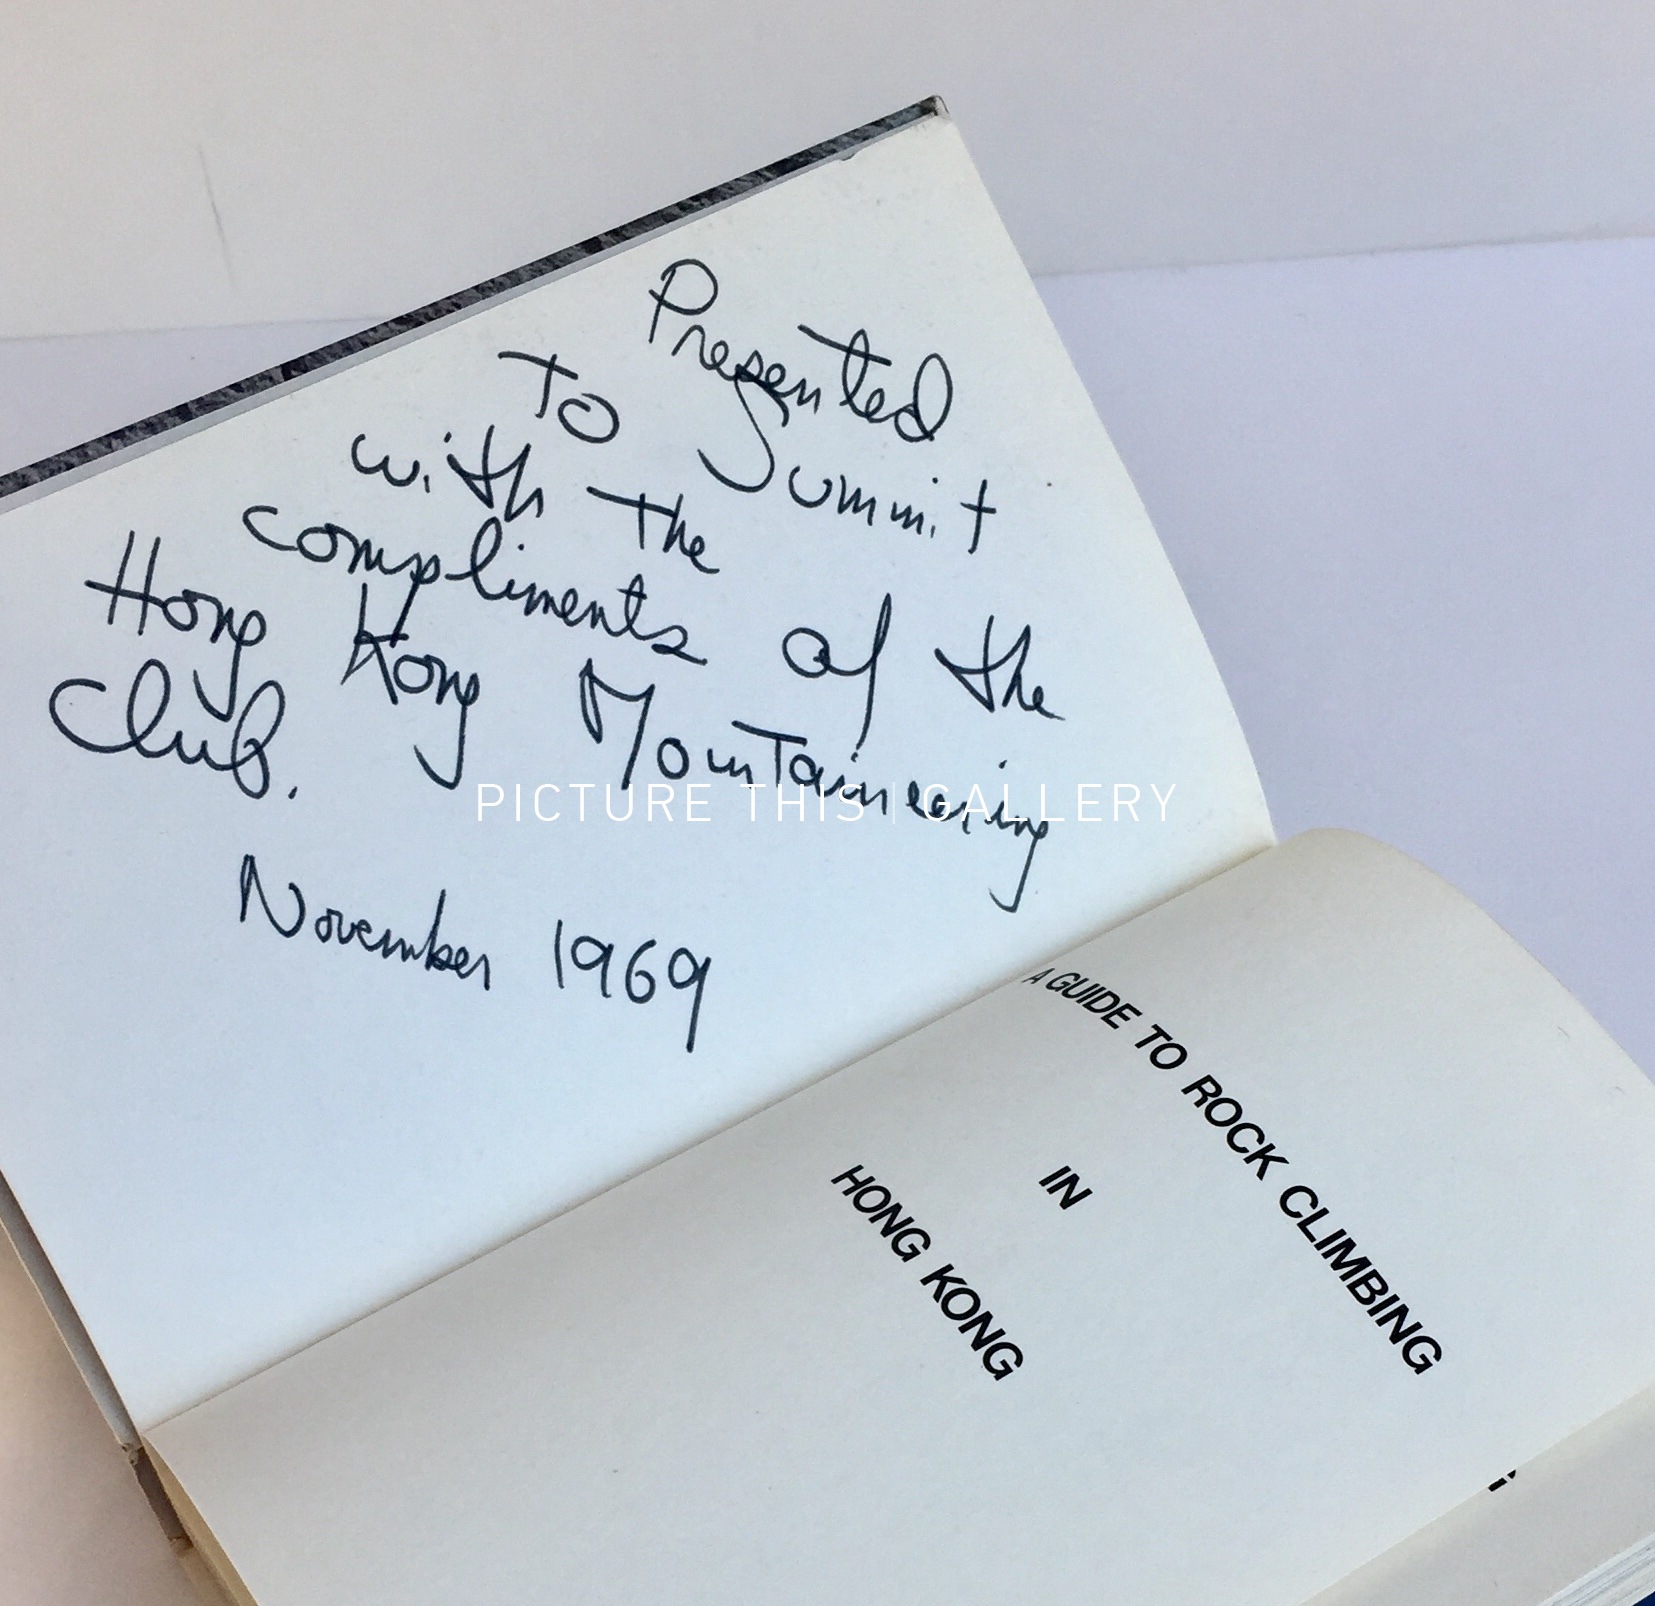 Presented
To Summit
with the
compliments of the
Hong Kong Mountaineering
Club.
November 1969
PICTURE THIS | GALLERY
A GUIDE TO ROCK CLIMBING
IN
HONG KONG